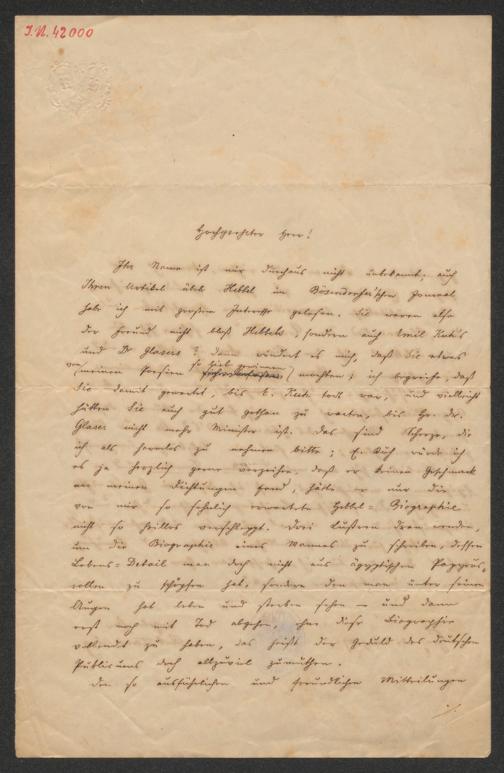 I.N. 42000
Hochgeehrter Herr!
Ihr Name ist mir durchaus nicht unbekannt; auch
Ihren Artikel über Hebbel im Bösendorfer'schen Journal
habe ich mit großem Interesse gelesen. Sie waren also
der Freund nicht bloß Hebbels, sondern auch Emil Kuh's
und Dr Glasers? dann wundert es mich, daß Sie etwas
von meinen Poesien so viel machten; ich begreife, daß
Sie damit gewartet, bis E. Kuh todt war, und vielleicht
hätten Sie auch gut gethan zu warten, bis Hr. Dr.
Glaser nicht mehr Minister ist. Das sind Scherze, die
ich als harmlos zu nehmen bitte; E. Kuh würde ich
es ja herzlich gerne verzeihen, daß er keinen Geschmack
an meinen Dichtungen fand, hätte er nur die
von mir so sehnlich erwartete Hebbel-Biographie
nicht so heillos verschleppt. Drei Lustren daran wenden,
um die Biographie eines Mannes zu schreiben, dessen
Lebens-Detail man doch nicht aus ägyptischen Papyrus-
rollen zu schöpfen hat, sondern den man unter seinen
Augen hat leben und sterben sehen — und dann
erst noch mit Tod abgehen, ohne diese Biographie
vollendet zu haben, das heißt der Geduld des deutschen
Publicums doch allzuviel zumuthen.
Den so ausführlichen und freundlichen Mittheilungen
./.